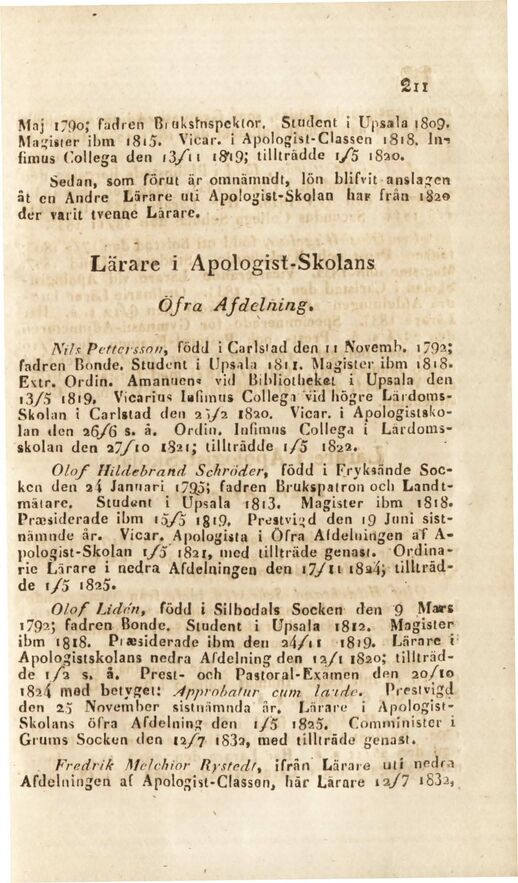 211
Maj 1790; fadren Bruksinspektor. Student i Upsala 1809.
Magister ibm 1815. Vicar. i Apologist-Classen 1818. In-
fimus Collega den 13/11 1819; tillträdde 1/5 1820.
Sedan, som förut är omnämndt, lön blifvit anslagen
åt en Andre Lärare uti Apologist-Skolan har från 1820
der varit tvenne Lärare.
Lärare i Apologist-Skolans
Öfra Afdelning.
Nils Pettersson, född i Carlstad den 11 Novemb. 1792;
fadren Bonde. Student i Upsala 1811. Magister ibm 1818.
Extr. Ordin. Amanuens vid Bibliotheket i Upsala den
13/5 1819. Vicarius Infimus Collega vid högre Lärdoms-
Skolan i Carlstad den 23/2 1820. Vicar. i Apologistsko-
lan den 26/6 s. å. Ordin. Infimus Collega i Lärdoms-
skolan den 27/10 1821; tillträdde 1/5 1822.
Olof Hildebrand Schröder, född i Fryksände Soc-
ken den 24 Januari 1795; fadren Brukspatron och Landt-
mätare. Student i Upsala 1813. Magister ibm 1818.
Præsiderade ibm 15/5 1819. Prestvigd den 19 Juni sist-
nämnde år. Vicar. Apologista i Öfra Afdelningen af A-
pologist-Skolan 1/5 1821, med tillträde genast. Ordina-
rie Lärare i nedra Afdelningen den 17/11 1824; tillträd-
de 1/5 1825.
Olof Lidén, född i Silbodals Socken den 9 Mars
1792; fadren Bonde. Student i Upsala 1812. Magister
ibm 1818. Præsiderade ibm den 24/11 1819. Lärare i
Apologistskolans nedra Afdelning den 12/1 1820; tillträd-
de 1/2 s. å. Prest- och Pastoral-Examen den 20/10
1824 med betyget: Approbatur cum laude. Prestvigd
den 25 November sistnämnda år. Lärare i Apologist-
Skolans öfra Afdelning den 1/5 1825. Comminister i
Grums Socken den 12/7 1832, med tillträde genast.
Fredrik Melchior Rystedt, ifrån Lärare uti nedra
Afdelningen af Apologist-Classen, här Lärare 12/7 1832,